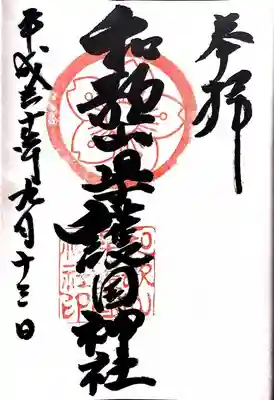 奉拝
和歌山県護国神社
平成二十五年九月十三日